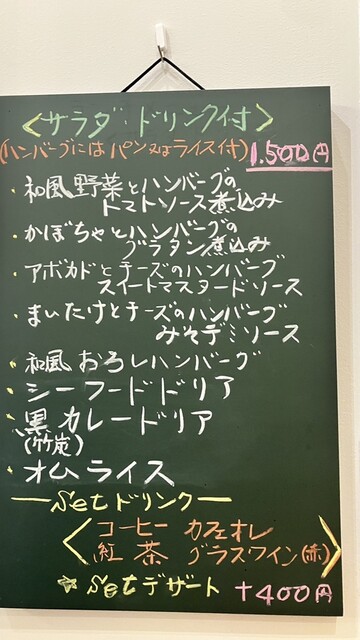 <サラダ・ドリンク付>
(ハンバーグには パン又はライス付) 1.500円
・和風野菜とハンバーグの
トマトソース煮込み
・かぼちゃとハンバーグの
グラタン煮込み
・アボカドとチーズのハンバーグ
スイートマスタードソース
・まいたけとチーズのハンバーグ
みそデミソース
・和風おろしハンバーグ
・シーフードドリア
・黒カレードリア
(竹炭)
・オムライス
―Setドリンク―
コーヒー カフェオレ
紅茶 グラスワイン(赤)
☆Setデザート +400円